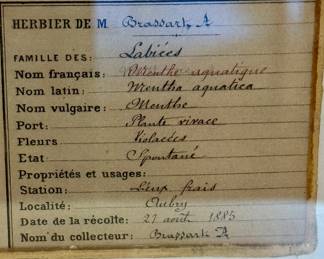 HERBIER DE M Brassart, A
FAMILLE DES: Labiées
Nom français: Menthe aquatique
Nom latin: Mentha aquatica
Nom vulgaire: Menthe
Port: Plante vivace
Fleurs Violacées
Etat Spontané
Propriétés et usages:
Station: Lieux frais
Localité: Aubry
Date de la récolte: 21 août 1885
Nom du collecteur: Brassart A